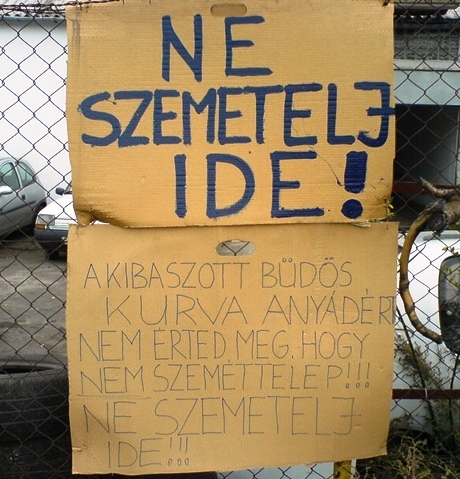 NE
SZEMETELJ
IDE!
A KIBASZOTT BÜDÖS
KURVA ANYÁDÉRT
NEM ÉRTED MEG, HOGY
NEM SZEMÉTTELEP!!!
NE SZEMETELJ
IDE!!!